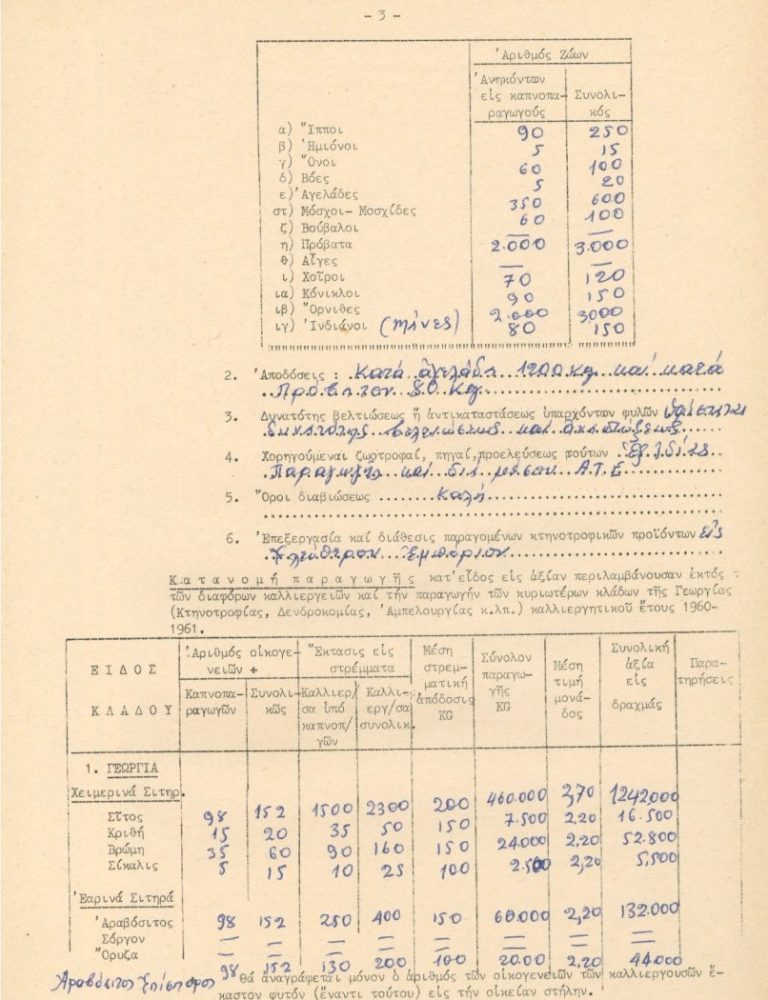 - 3 -
Ἀριθμός Ζώων
Ἀνηκόντων εἰς καπνοπαραγωγούς Συνολικός
α) Ἵπποι 90 250
β) Ἡμιόνοι 5 15
γ) Ὄνοι 60 100
δ) Βόες 5 20
ε) Ἀγελάδες 350 600
στ) Μόσχοι- Μοσχίδες 60 100
ζ) Βούβαλοι — —
η) Πρόβατα 2.000 3.000
θ) Αἶγες — —
ι) Χοῖροι 70 120
ια) Κόνικλοι 90 150
ιβ) Ὄρνιθες 2.000 3000
ιγ) Ἰνδιάνοι 80 150
2. Ἀποδόσεις : Κατά ἀγελάδα 1200 kg καί κατά
Πρόβατον 80 Kg
3. Δυνατότης βελτιώσεως ἤ ἀντικαταστάσεως ὑπαρχόντων φυλῶν
δυνατότης βελτιώσεως καί
4. Χορηγούμεναι ζωοτροφαί, πηγαί προελεύσεως τούτων Ἐξ ἰδίας
Παραγωγῆς καί διά μέσου Α.Τ.Ε
5. Ὅροι διαβιώσεως ........ Καλή
6. Ἐπεξεργασία καί διάθεσις παραγομένων κτηνοτροφικῶν προϊόντων Εἰς
Ἐλεύθερον Ἐμπόριον
Κατανομή παραγωγῆς κατ'εἶδος εἰς ἀξίαν περιλαμβάνουσαν ἐκτός
τῶν διαφόρων καλλιεργειῶν καί τήν παραγωγήν τῶν κυριωτέρων κλάδων τῆς Γεωργίας
(Κτηνοτροφίας, Δενδροκομίας, Ἀμπελουργίας κ.λπ.) καλλιεργητικοῦ ἔτους 1960-
1961.
ΕΙΔΟΣ ΚΛΑΔΟΥ
Ἀριθμός οἰκογενειῶν +
Καπνοπαραγωγῶν Συνολικῶς
Ἔκτασις εἰς στρέμματα
Καλλιερ/σα ὑπό καπνοπ/γῶν Καλλιεργ/σα συνολικ.
Μέση στρεμματική ἀπόδοσις KG
Σύνολον παραγωγῆς KG
Μέση τιμή μονάδος
Συνολική ἀξία εἰς δραχμάς
Παρατηρήσεις
1. ΓΕΩΡΓΙΑ
Χειμερινά Σιτηρ.
Σῖτος 98 152 1500 2300 200 460.000 2,70 1242.000
Κριθή 15 20 35 50 150 7.500 2,20 16.500
Βρώμη 35 60 90 160 150 24.000 2,20 52.800
Σίκαλις 5 15 10 25 100 2.500 2,20 5,500
Ἐαρινά Σιτηρά
Ἀραβόσιτος 98 152 250 400 150 60.000 2,20 132.000
Σόργον — — — — — — — —
Ὄρυζα — — — — — — — —
Ἀραβόσιτος Ἐπίσπορος 98 152 130 200 100 20.000 2,20 44.000
Θά ἀναγράφεται μόνον ὁ ἀριθμός τῶν οἰκογενειῶν τῶν καλλιεργουσῶν ἕ-
καστον φυτόν (ἔναντι τούτου) εἰς τήν οἰκείαν στήλην.